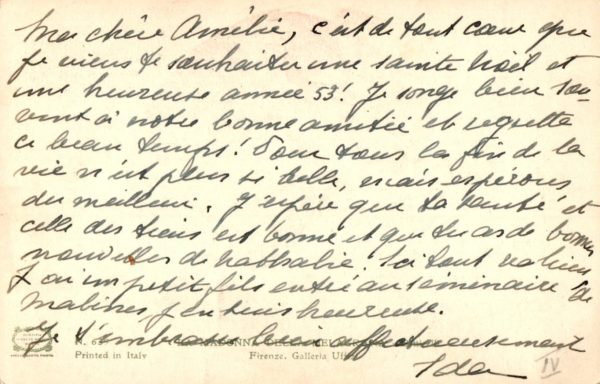 Ma chère Amélie, c'est de tout cœur que
je viens te souhaiter une sainte Noël et
une heureuse année 53! Je songe bien sou-
vent à notre bonne amitié et regrette
ce beau temps! Pour tous la fin de la
vie n'est plus si belle, mais espérons
du meilleur. J'espère que ta santé et
celle des tiens est bonne et que tu as de bonnes
nouvelles de Nathalie. Ici tout va bien
J'ai un petit fils entré au séminaire de
Malines, j'en suis heureuse.
Je t'embrasse bien affectueusement
N. 6
Printed in Italy
Firenze. Galleria Uff
Ida
IV